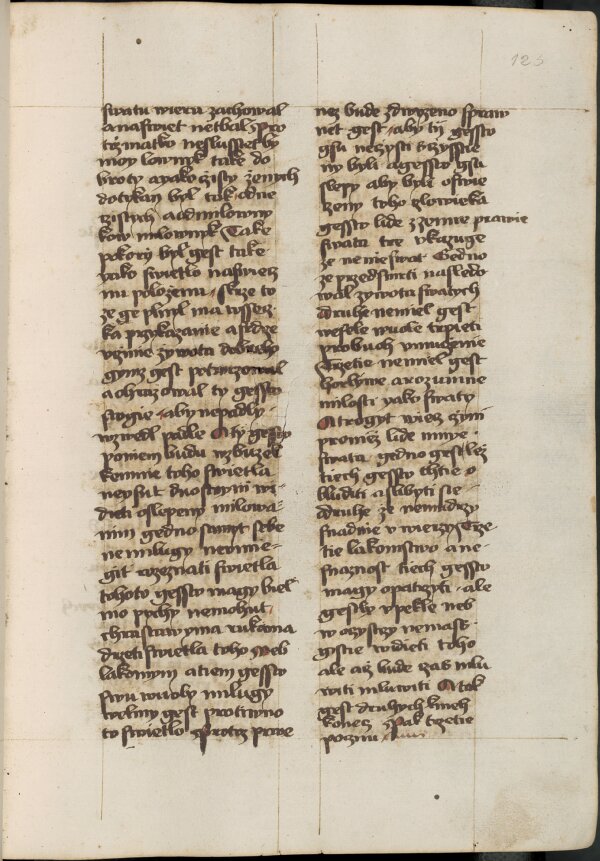 123
swatu wieru zachowal
a naswiet netbal Pro
tozmatko neslussieloby
moy lownyk take do
wroty a yako czisty zenych
dotykan byl tak odne
czistych a od milowny
kow milownyk Take
pokory byl gest take
yako swietlo na swiecz
nu polozenu skrze to
ze ge plnyl ma wssec
ka przykazanie a skrze
wznie zywota dobreho
gymz gest potwrzowal
a obrazowal ty gessto
stogie aby nepadly
wzwedl padle A ty gessto
potem budu wzbuzel
kemnie toho swietla
neysut duostoyni wi
dieti oslepeny milowa
nim gedno samy sebe
nemilugy neomie
git wzeznati swietla
tohoto gessto magy biel
mo pychy nemohut
chrastawyma rukama
drzeti swietla toho Neb
lakomym a tiem gessto
swu wuoly milugy
welmy gest protiwno
to swietlo Protoz prwe
nez bude zdwizeno spraw
net gest aby ty gessto
gsu neczysti oczysstie
ny byli a gessto gsu
slepy aby byli oswie
ceny toho czlowieka
gessto lide z zemie prawie
swata tre ukazuge
ze nenie swat Gedno
ze przedsmrti nasledo
wal zywota swatych
Druhe nemiel gest
wesele wuole trpieti
pro buoh umuczenie
Trzetie nemiel gest
horlywe a rozumne
milosti yako swaty
A trogyt wiecz czyni
promiez lide mnye
swata gedno gest lez
tiech gessto chtie o
bluditi a slibyti sie
Druhe ze nemudrzy
snadnie v wierzy Trze
tie lakomstwo a ne
snaznost tiech gessto
magy opatrzyti ale
gestly v pekle neb
w oczystczy nemass
gystie wiedieti toho
ale az bude zas mlu
witi mluwiti A tak
gest druhych knieh
konecz Pak trzetie
poczinu